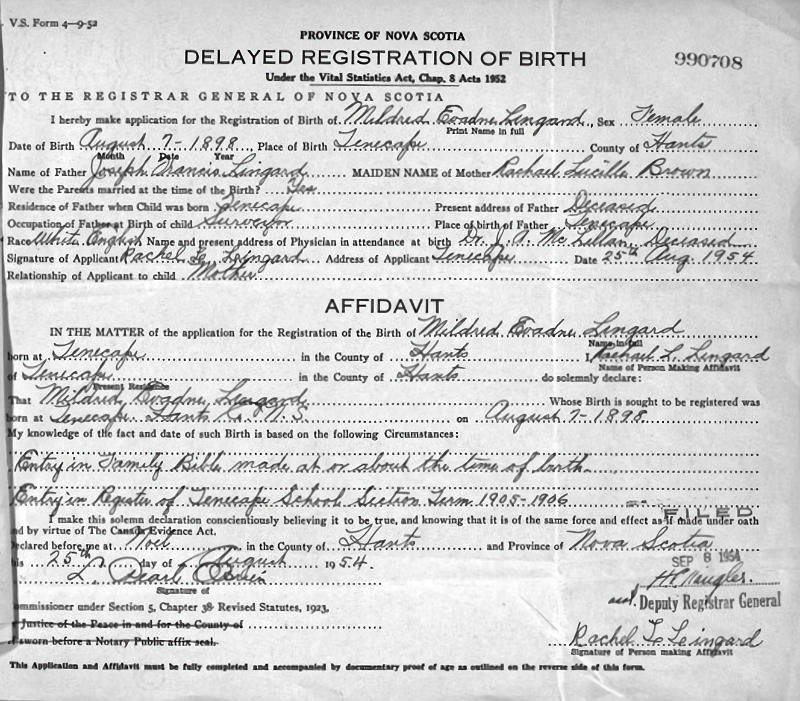 V.S. Form 4—9-52
PROVINCE OF NOVA SCOTIA
DELAYED REGISTRATION OF BIRTH
990708
Under the Vital Statistics Act, Chap. 8 Acts 1952
TO THE REGISTRAR GENERAL OF NOVA SCOTIA
I hereby make application for the Registration of Birth of Mildred Evadne Lingard, Sex Female
Print Name in full
Date of Birth August 7-1898 Place of Birth Tenecape County of Hants
Month Date Year
Name of Father Joseph Francis Lingard MAIDEN NAME of Mother Rachael Lucilla Brown
Were the Parents married at the time of the Birth? Yes
Residence of Father when Child was born Tenecape Present address of Father Deceased
Occupation of Father at Birth of child Surveyor Place of birth of Father Tenecape
Race White English Name and present address of Physician in attendance at birth Dr. J. A. McLellan, Deceased
Signature of Applicant Rachel L. Leingard Address of Applicant Tenecape Date 25th Aug. 1954
Relationship of Applicant to child Mother
AFFIDAVIT
IN THE MATTER of the application for the Registration of the Birth of Mildred Evadne Lingard
Name in full
born at Tenecape in the County of Hants I, Rachael L. Lingard
Name of Person Making Affidavit
of Tenecape in the County of Hants do solemnly declare:
Present Residence
That Mildred Evadne Lingard Whose Birth is sought to be registered was
born at Tenecape Hants Co. N.S. on August 7-1898
My knowledge of the fact and date of such Birth is based on the following Circumstances:
Entry in Family Bible made at or about the time of birth
Entry in Register of Tenecape School Section Term 1905-1906
FILED
I make this solemn declaration conscientiously believing it to be true, and knowing that it is of the same force and effect as if made under oath
and by virtue of The Canada Evidence Act.
Declared before me at Noel in the County of Hants and Province of Nova Scotia
his 25th day of August 1954.
SEP 8 1954
L. Pearl O'Brien
Signature of
Deputy Registrar General
ommissioner under Section 5, Chapter 38 Revised Statutes, 1923,
r Justice of the Peace in and for the County of
f sworn before a Notary Public affix seal.
Rachel L Leingard
Signature of Person making Affidavit
This Application and Affidavit must be fully completed and accompanied by documentary proof of age as outlined on the reverse side of this form.